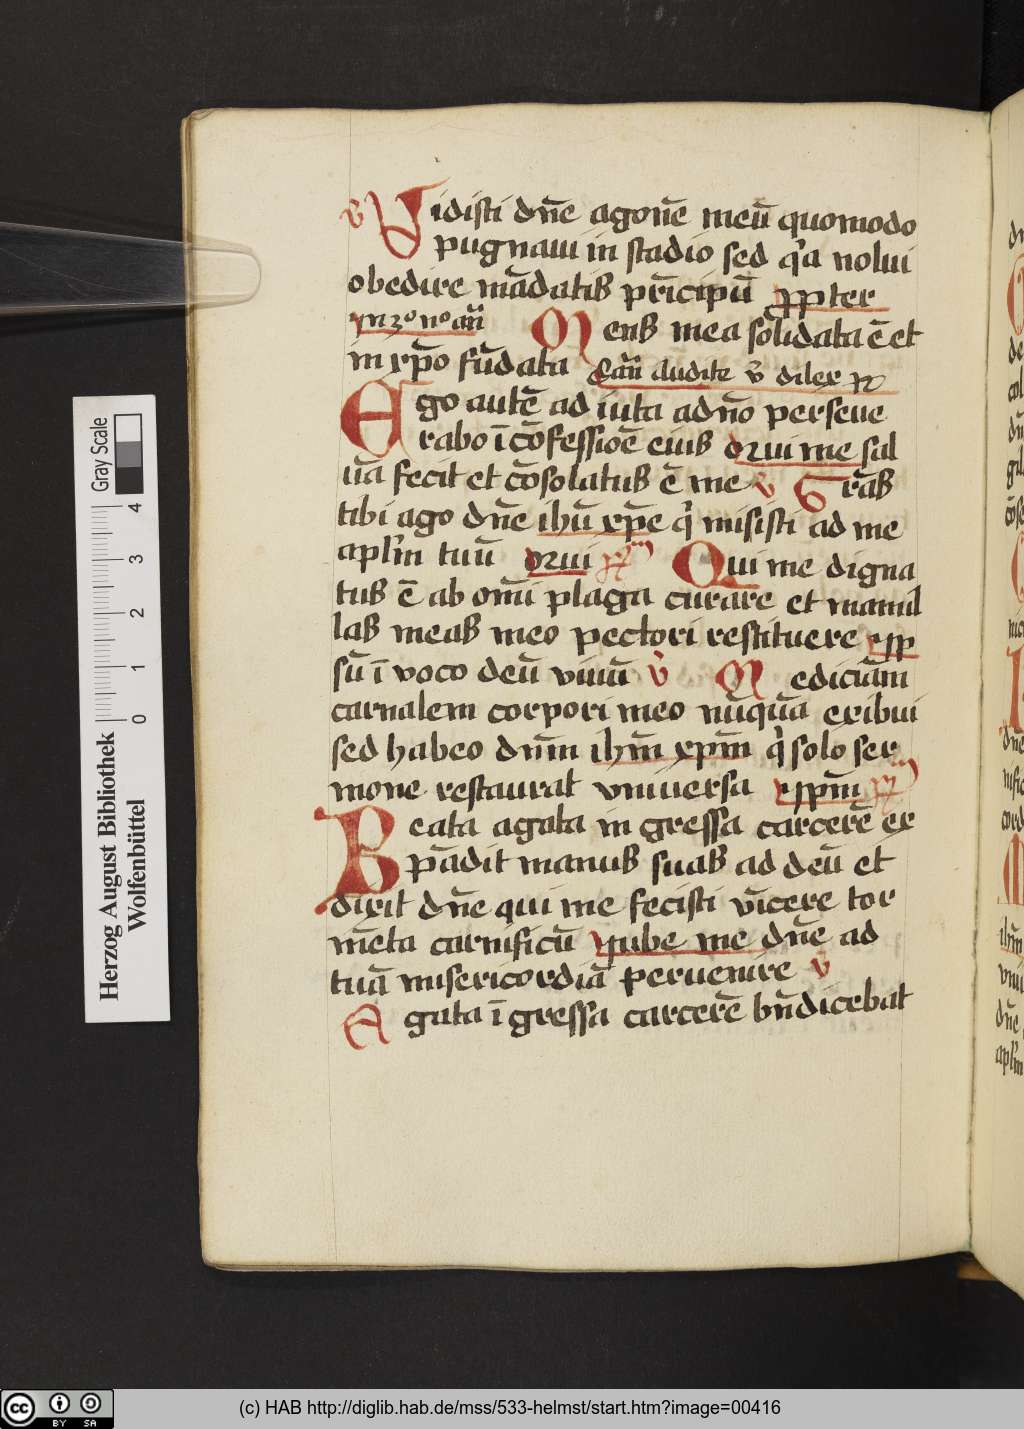 v̄ Vidisti dn̄e agonē meū quomodo
pugnaui in stadio sed qa nolui
obedire mādatis pr̄icipū ppter
yn 3º nº an̄
Mens mea solidata ē et
in xp̄o fūdata Ean̄ audite v̄ dilex
Ego autē ad iuta adn̄o perseue
rabo ī cōfessiōe eius Qui me sal
uā fecit et cōsolatus ē me v̄ Grās
tibi ago dn̄e ihū xp̄e q̄ misisti ad me
apl̄m tuū Qui
Qui me digna
tus ē ab om̄i plaga curare et mamil
las meas meo pectori restituere
sū ī voco deū viuū v̄ Medicinā
carnalem corpori meo nūquā exibui
sed habeo dnm̄ ihm̄ xpm̄ q̄ solo ser
mone restaurat vniuersa
Beata agata in gressa carcerē ex
pādit manus suas ad deū et
dixit dn̄e qui me fecisti vīcere tor
mēta carnificū yube me dn̄e ad
tuā misericordiā peruenire v̄
Agata ī gressa carcerē bn̄dicebat
Herzog August Bibliothek
Wolfenbüttel
Gray Scale
0 1 2 3 4
(c) HAB http://diglib.hab.de/mss/533-helmst/start.htm?image=00416
cc BY SA